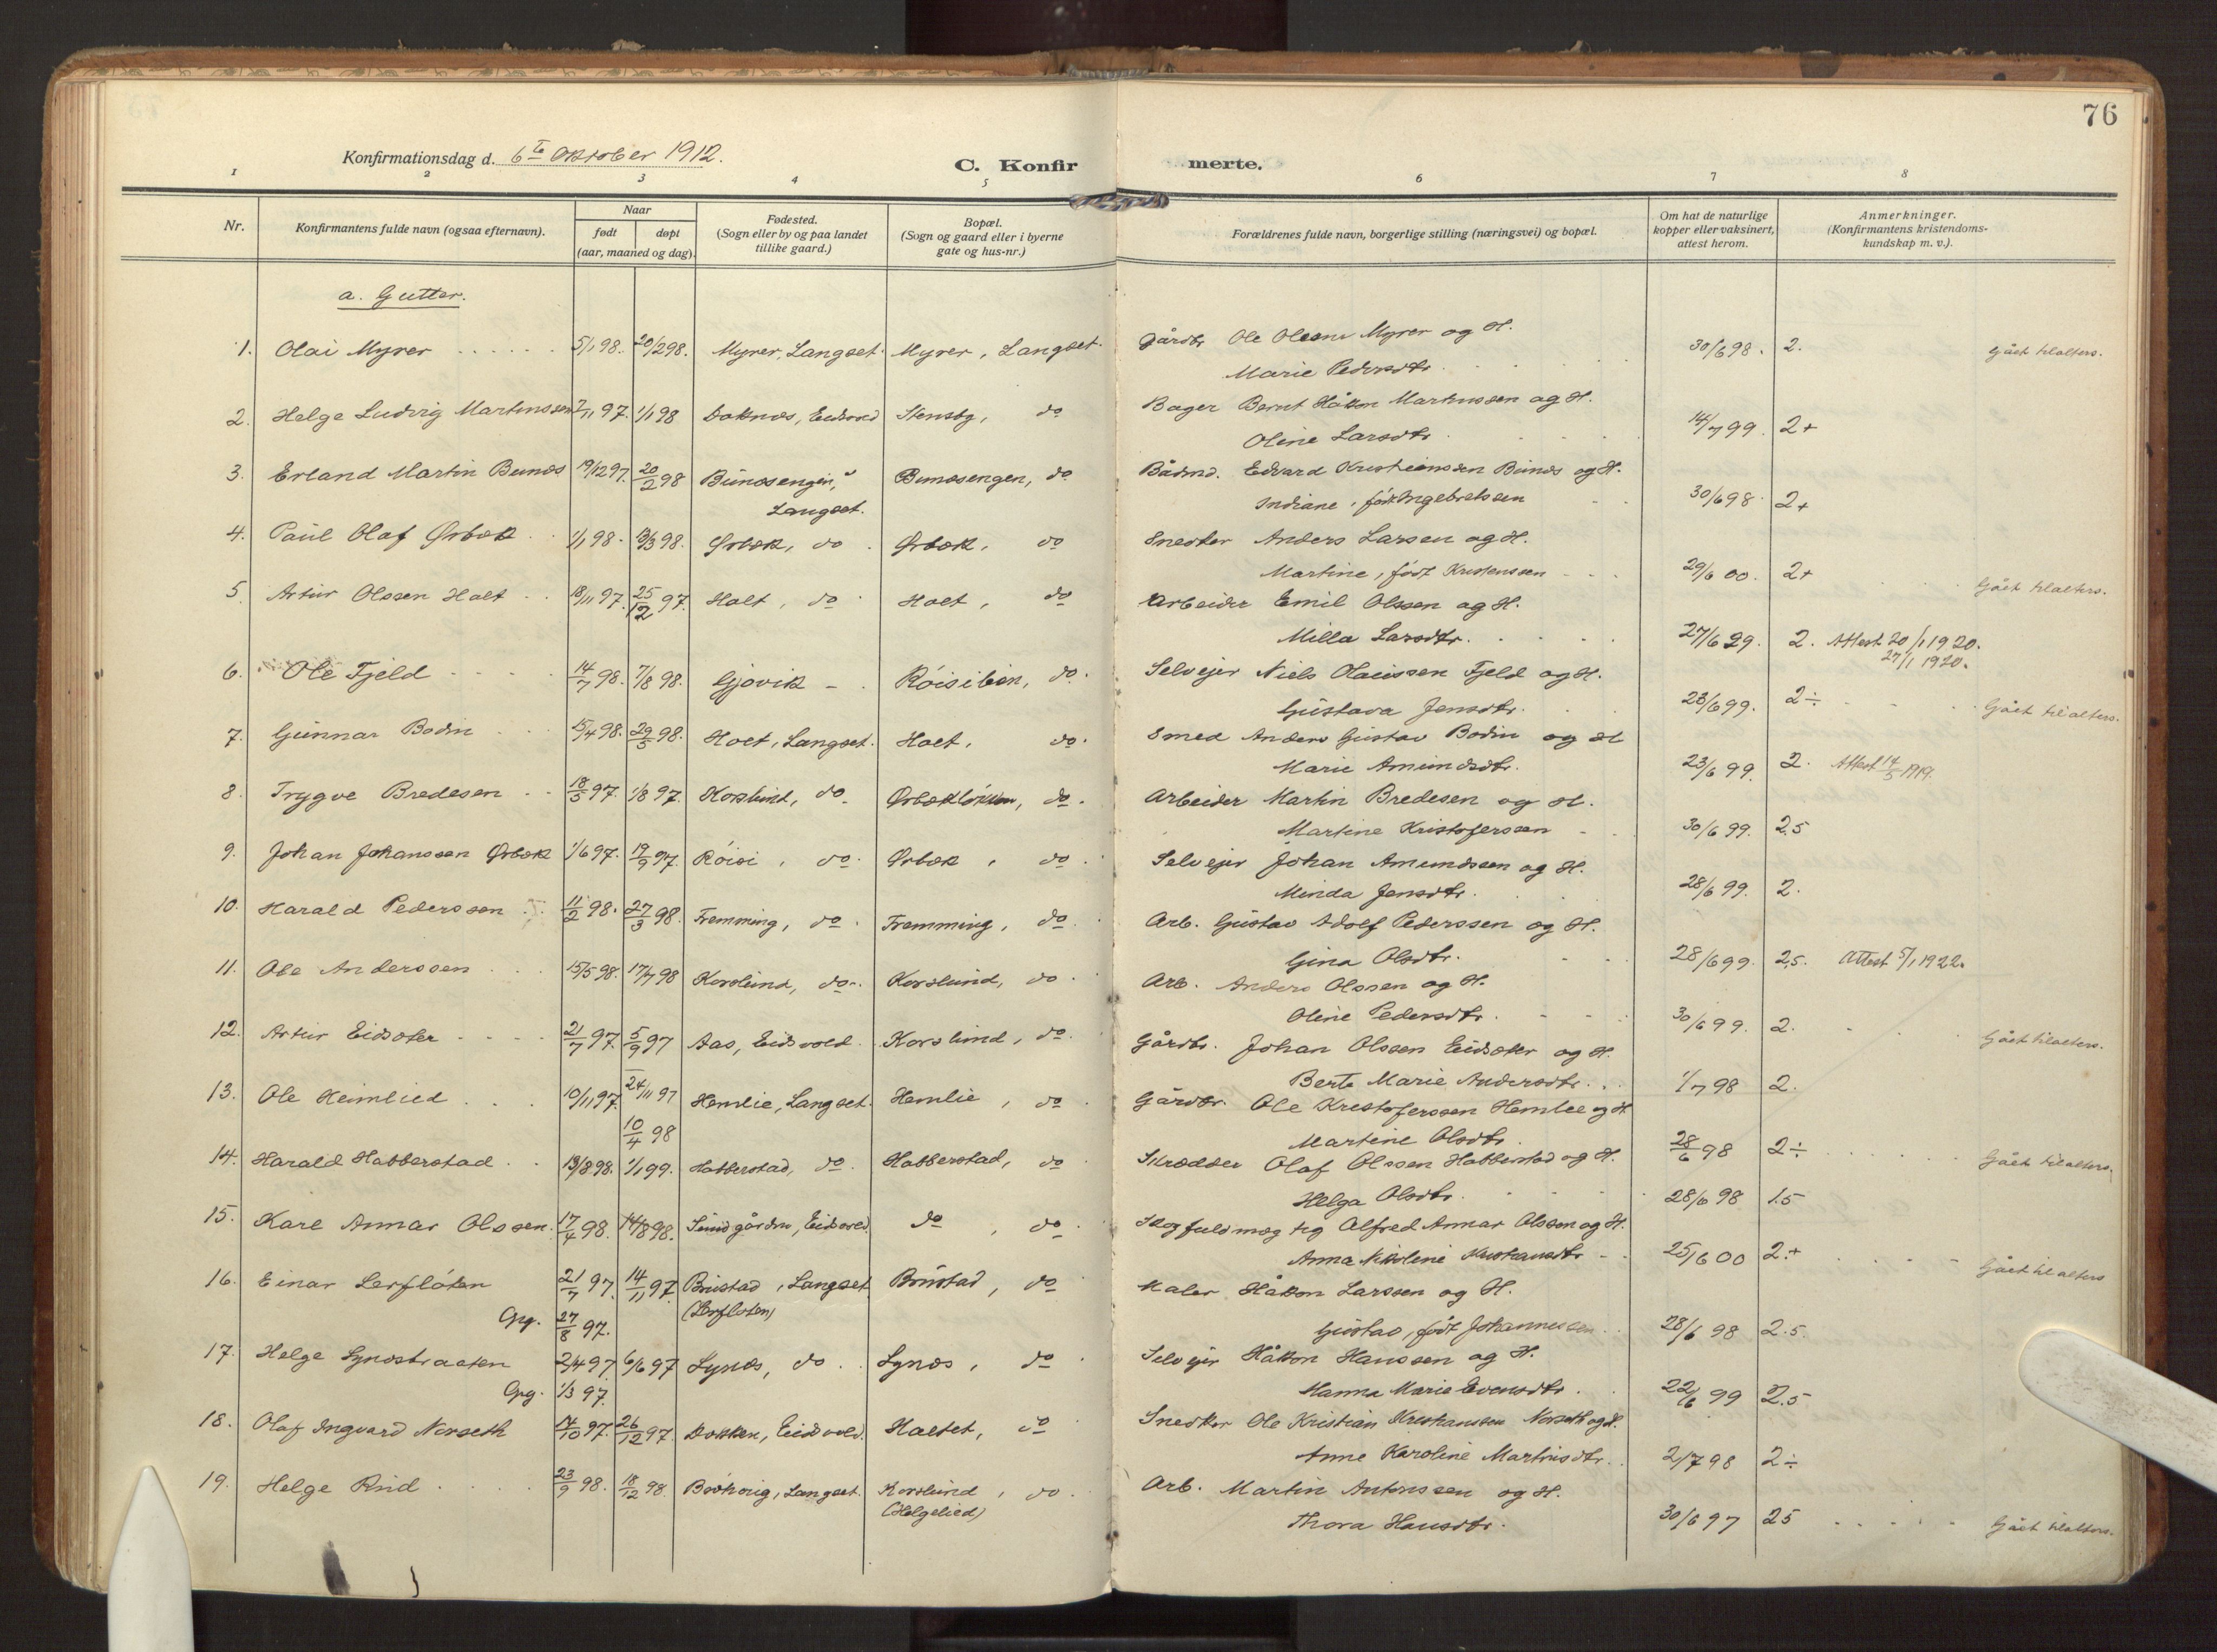 76
Konfirmationsdag d. 6te Oktober 1912.
C. Konfirmerte.
1 2 3 4 5 6 7 8
Nr.
Konfirmantens fulde navn (ogsaa efternavn).
Naar
født døpt
(aar, maaned og dag).
Fødested.
(Sogn eller by og paa landet
tillike gaard.)
Bopæl.
(Sogn og gaard eller i byerne
gate og hus-nr.)
Forældrenes fulde navn, borgerlige stilling (næringsvei) og bopæl.
Om hat de naturlige
kopper eller vaksinert,
attest herom.
Anmerkninger.
(Konfirmantens kristendoms-
kundskap m. v.).
a. Gutter.
1. Olai Myrer 5/1 98. 20/2 98. Myrer, Langset. Myrer, Langset. Gårdbr Ole Olsen Myrer og H. 30/6 98. 2. Gået tilalters.
Marie Pedersdtr.
2. Helge Ludvig Martinssen 7/11 97. 1/1 98 Doknes, Eidsvold Stensby, do Bager Bernt Håkon Martinssen og H. 14/7 99. 2+
Oline Larsdtr.
3. Erland Martin Bunæs 19/12 97. 20/2 98 Bunæsengen, Bunæsengen, do Bådmd. Edvard Kristianssen Bunæs og H. 30/6 98. 2+
Langset.
Indiane, født Ingebretssen
4. Paul Olaf Ørbæk 1/1 98. 13/3 98. Ørbæk, do Ørbæk, do Snedker Anders Larsen og H. 29/6 00. 2+ Gået tilalters.
Martine, født Kristenssen
5. Artur Olssen Holt 18/11 97. 25/12 97. Holt, do Holt, do Arbeider Emil Olssen og H. 27/6 99. 2. Attest 20/1 1920.
27/1 1920.
Milla Larsdtr.
6. Ole Fjeld 14/7 98. 7/8 98. Gjøvik Røisibien, do. Selveier Niels Olaussen Fjeld og H. 23/6 99. 2÷ Gået tilalters.
Gustava Jensdtr.
7. Gunnar Bodin 15/4 98. 29/5 98. Holt, Langset. Holt, do. Smed Anders Gustav Bodin og H 23/6 99. 2. Attest 14/5 1919.
Marie Amundsdtr.
8. Trygve Bredesen 18/5 97. 1/8 97. Korslund, do. Ørbækløkken, do. Arbeider Martin Bredesen og H. 30/6 99. 2.5
Martine Kristofersen
9. Johan Johanssen Ørbæk 1/6 97. 19/9 97. Røisi, do. Ørbæk, do Selveier Johan Amundssen og H. 28/6 99. 2.
Minda Jensdtr.
10. Harald Pederssen 11/2 98. 27/3 98. Fremming, do. Fremming, do. Arb. Gustav Adolf Pederssen og H. 28/6 99. 2.5. Attest 5/1 1922.
Gina Olsdtr.
11. Ole Anderssen 15/5 98. 17/7 98 Korslund, do. Korslund, do Arb. Anders Olssen og H. 30/6 99. 2. Gået tilalters.
Oline Pedersdtr.
12. Artur Eidsæter 21/7 97. 5/9 97 Aas, Eidsvold. Korslund, do. Gårdbr. Johan Olssen Eidsæter og H. 1/7 98 2.
Berte Marie Andersdtr.
13. Ole Heimlied 10/11 97. 24/11 97 Hemlie, Langset. Hemlie, do Gårdbr. Ole Kristoferssen Hemlie og H 28/6 98 2÷ Gået tilalters.
10/4 98
Martine Olsdtr.
14. Harald Habberstad 13/8 98. 1/1 99. Habberstad, do. Habberstad, do Skrædder Olaf Olssen Habberstad og H. 28/6 98 1.5
Helga Olsdtr.
15. Kare Annar Olssen. 17/4 98. 14/8 98. Sundgården, Eidsvold do, do. Skogfuldmægtig Alfred Annar Olssen og H. 25/6 00 2.+ Gået tilalters
Anna Nikoline Kristiansdtr
16. Einar Lerfløten 21/7 97. 14/11 97. Brustad, Langset Brustad, do Maler Håkon Larssen og H. 28/6 98 2.5.
Grg. 27/8 97. (Lerfloten)
Gustav, født Johannessen
17. Helge Synæstraaten 2/4 97. 6/6 97 Synæs, do. Synæs, do Selveier Håkon Hanssen og H. 22/6 99 2.5
Grg. 1/3 97.
Hanna Marie Evensdtr.
18. Olaf Ingvard Norseth 14/10 97. 26/12 97. Dokken, Eidsvold. Holtet, do Snedker Ole Kristian Kristianssen Norseth og H. 2/7 98 2÷
Anne Karoline Martinsdtr.
19. Helge Rud 23/9 98. 18/12 98. Langset. Korslund, do. Arb. Martin Antonssen og H. 30/6 97 2.5 Gået tilalters.
(Helgelied)
Thora Hansdtr.